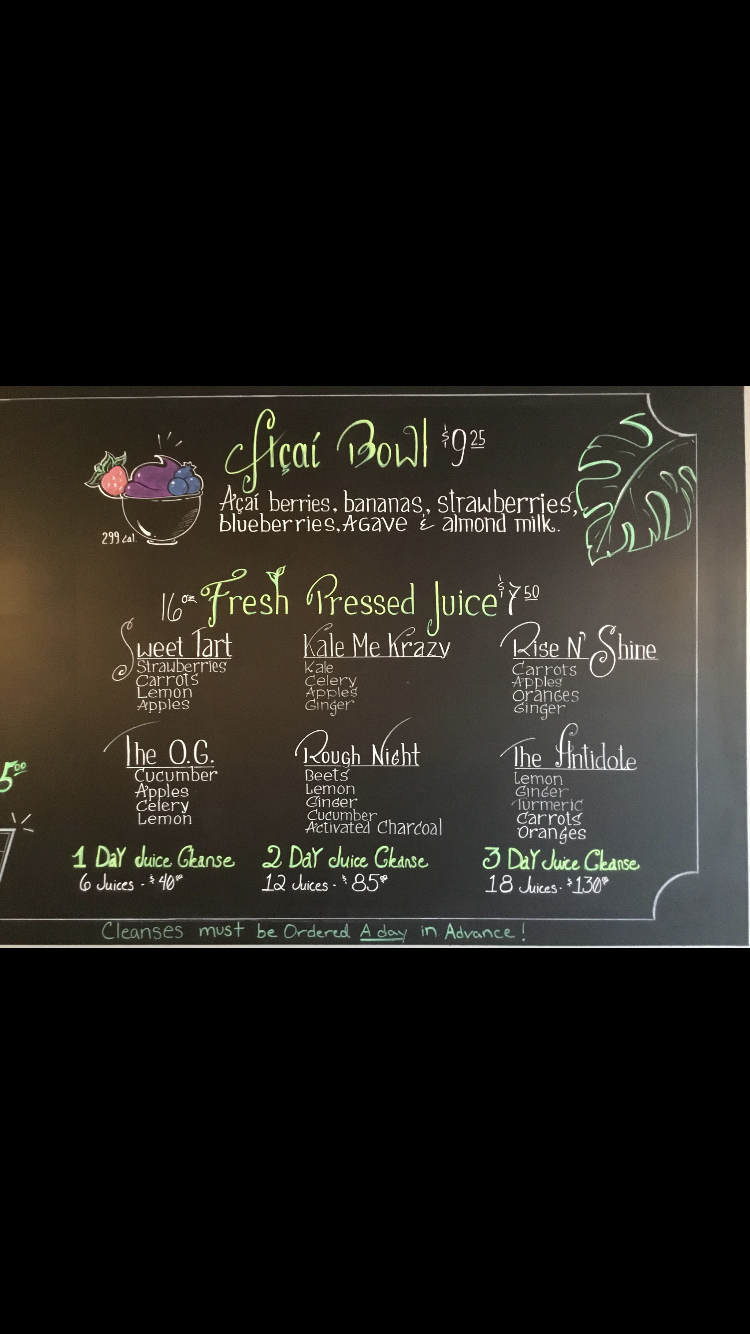 Açaí Bowl $9.25
Açaí berries, bananas, strawberries,
blueberries, Agave & almond milk.
299 cal.
16 oz Fresh Pressed Juice $7.50
Sweet Tart
Strawberries
Carrots
Lemon
Apples
Kale Me Krazy
Kale
Celery
Apples
Ginger
Rise N' Shine
Carrots
Apples
Oranges
Ginger
The O.G.
Cucumber
Apples
Celery
Lemon
Rough Night
Beets
Lemon
Ginger
Cucumber
Activated Charcoal
The Antidote
Lemon
Ginger
Turmeric
Carrots
Oranges
5.00
1 Day Juice Cleanse
6 Juices - $40.00
2 Day Juice Cleanse
12 Juices - $85.00
3 Day Juice Cleanse
18 Juices - $130.00
Cleanses must be Ordered A day in Advance!